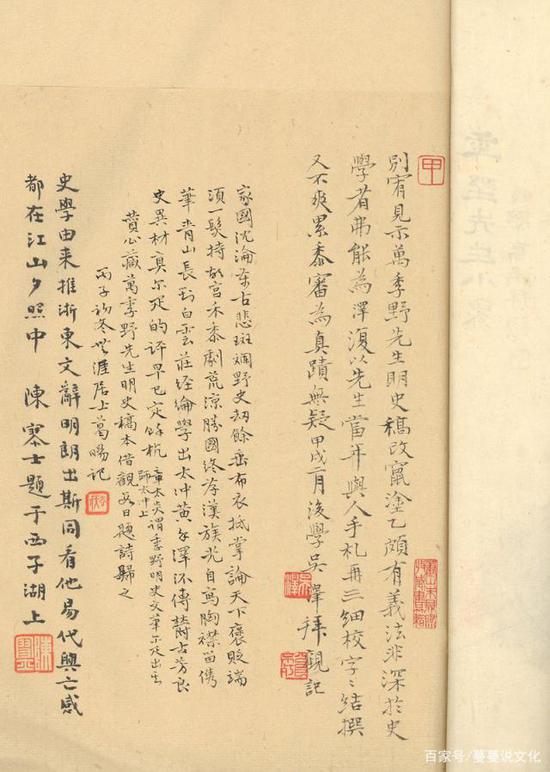 甲
別宥見示萬季野先生明史稿改竄塗乙頗有義法非深於史
學者弗能為澤復以先生當年與人手札再三細校字〻結撰
又不爽累黍審為真蹟無疑甲戌二月後學吳澤拜觀記
家國沈淪萬古悲斑斕野史劫餘垂布衣抵掌論天下褒貶端
須一髮持故宮禾黍劇荒涼勝國終存漢族光自寫胸襟留儁
筆青山長對白雲莊經綸學出太沖黃手澤流傳古芳良
史異材真不死的評早已定餘杭章太炎謂季野明史文筆不死出
師太沖上
贊公藏萬季野先生明史稿本借觀日題詩歸之
丙子初冬无涯居士葛暘記
史學由来推浙東文辭明朗出斯同看他易代興亡感
都在江山夕照中 陳寥士題于西子湖上
百家号/蔓蔓说文化